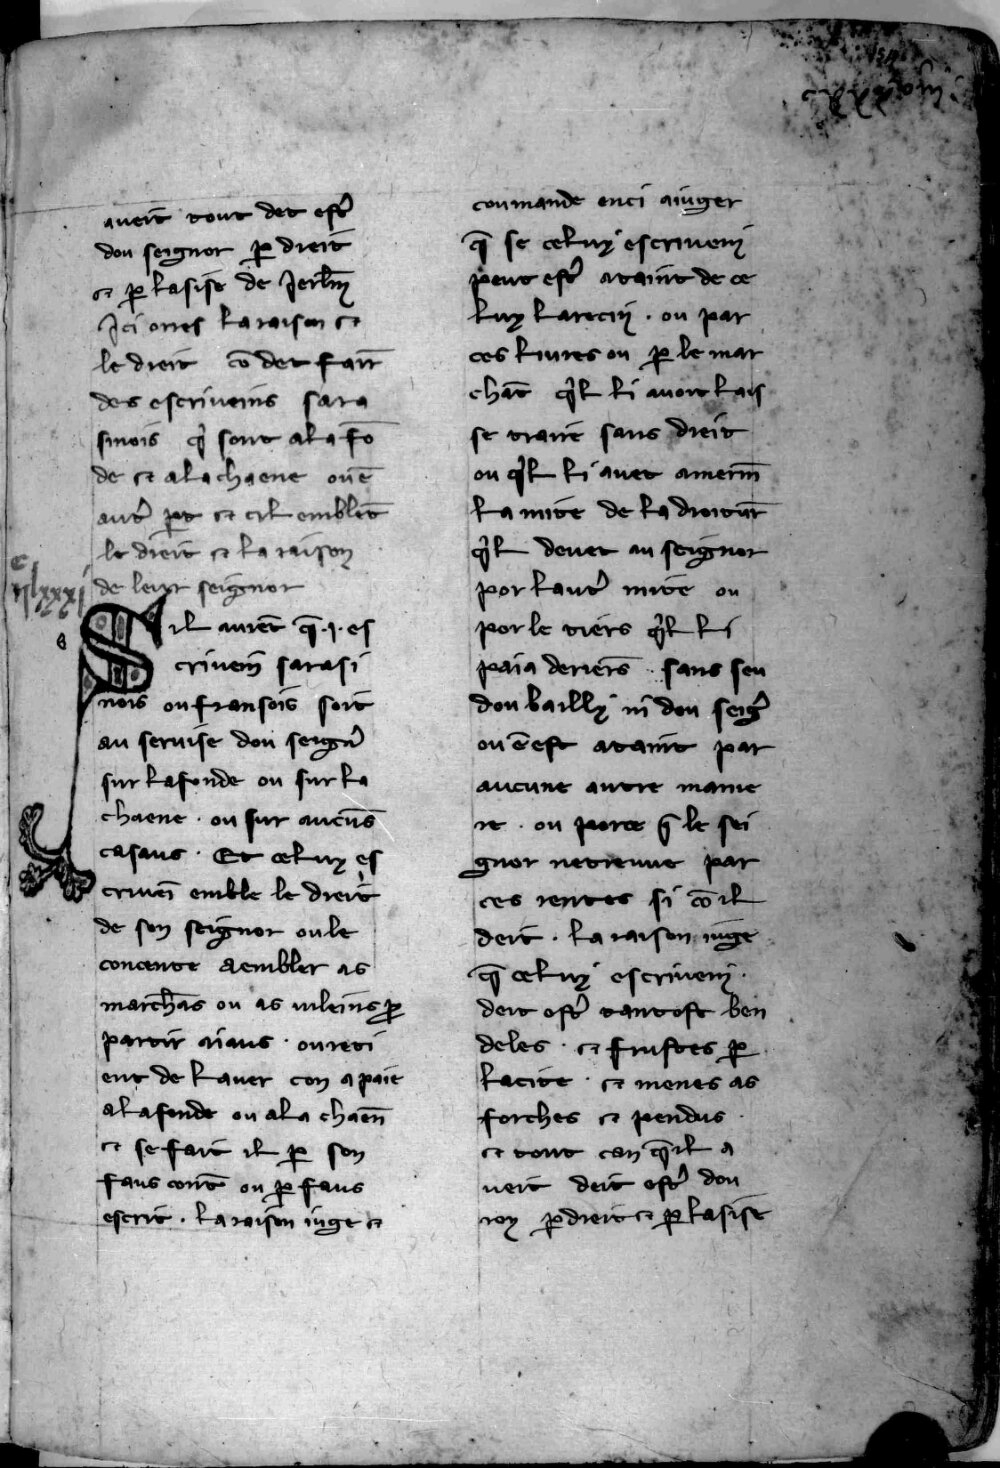 aueit tout det estr̃
dou seignor p̱ dreit
⁊ p̱ lasise de Jerl̃m
Jci orres la raison ⁊
le dreit cõ det fair̃
des escriueins sara
sinois q̃ sont a la fõ
de ⁊ a la chaene ou ẽ
autr̃ p̱t ⁊ cil emblẽt
le dreit ⁊ la raison
de leur seignor
Sil auent q̃ .i. es
criuein sarasi
nois ou fransois soit
au seruise dou seignr̃
sur la fonde ou sur la
chaene . ou sur aucũs
casaus . Et celuy es
criueĩ emble le dreit
de son seignor ou le
concente a embler as
marchãs ou as uileins p̱
partir a iaus . ou reti
ent de lauer con a paie
a la fonde ou a la chaeñ
⁊ se fait il p̱ son
faus cont̃ ou p̱ faus
escrit . la raison iuge ⁊
coumande enci a iuger
q̃ se celuy escriuein
peut estr̃ ataint de ce
luy larecin . ou par
ces liures ou p̱ le mar
chãt q̃l li auoit lais
se traire sans dreit
ou q̃l li auet amerm̃
la mite de la droitur̃
q̃l deuet au seignor
por lautr̃ mite ou
por le tiers q̃l li
paia deriers̃ . sans seu
dou bailly ni dou seigr̃
ou ẽ est ataint par
aucune autre manie
re . ou porce q̃ le sei
gnor netreuue par
ces rentes si cõ il
deit . la raison iuge
q̃ celuy escriuein .
deit estr̃ tantost ben
deles . ⁊ frustes p̱
la cite . ⁊ menes as
forches ⁊ pendus .
⁊ tout can q̃ il a
ueit deit estr̃ dou
roy p̱ dreit ⁊ p̱ lasise